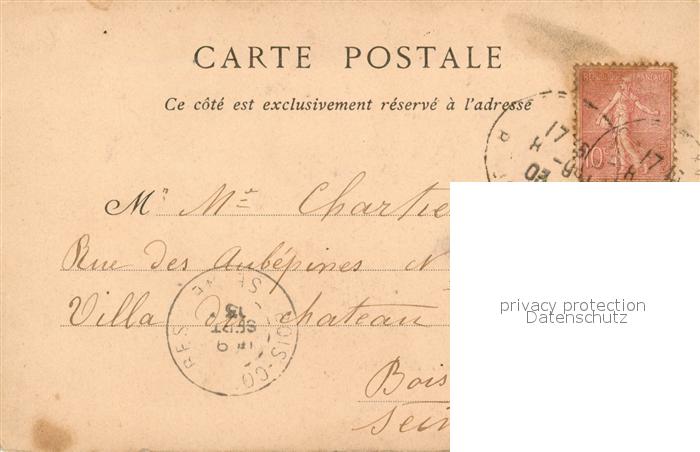 CARTE POSTALE
Ce côté est exclusivement réservé à l'adresse
RÉPUBLIQUE FRANÇAISE
10
M Me Chartie
Rue des Aubépines N
Villa du chateau
Bois
Sein
BOIS-CO
SEINE
SEPT
privacy protection
Datenschutz